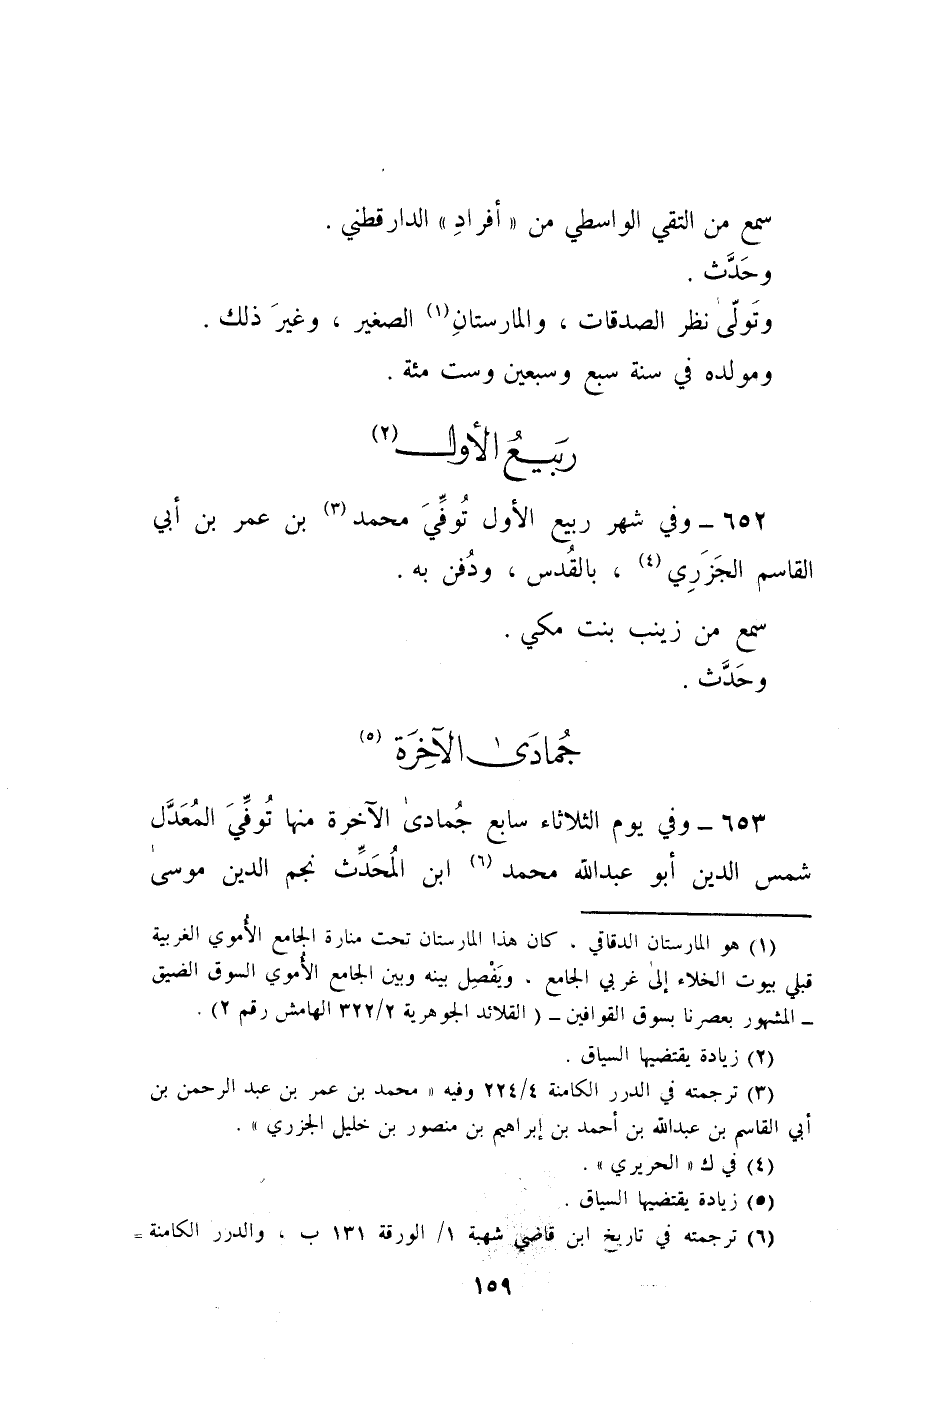 سمع من التقي الواسطي من « أفرادِ » الدارقطني .
وحَدَّث .
وتَولّىٰ نظر الصدقات ، والمارستانِ(١) الصغير ، وغيرَ ذلك .
ومولده في سنة سبع وسبعين وست مئة .
رَبيعُ الأول(٢)
٦٥٢ ـ وفي شهر ربيع الأول تُوفِّيَ محمد(٣) بن عمر بن أبي
القاسم الجَزَرِي(٤) ، بالقُدس ، ودُفن به .
سمع من زينب بنت مكي .
وحَدَّث .
جُمادَىٰ الآخِرَة (٥)
٦٥٣ ـ وفي يوم الثلاثاء سابع جُمادىٰ الآخرة منها تُوفِّيَ المُعَدَّل
شمس الدين أبو عبدالله محمد(٦) ابن المُحَدِّث نجم الدين موسىٰ
(١) هو المارستان الدقاقي . كان هذا المارستان تحت منارة الجامع الأُموي الغربية
قبلي بيوت الخلاء إلىٰ غربي الجامع . ويَفْصِل بينه وبين الجامع الأُموي السوق الضيق
ـ المشهور بعصرنا بسوق القوافين ـ ( القلائد الجوهرية ٣٢٢/٢ الهامش رقم ٢) .
(٢) زيادة يقتضيها السياق .
(٣) ترجمته في الدرر الكامنة ٢٢٤/٤ وفيه « محمد بن عمر بن عبد الرحمن بن
أبي القاسم بن عبدالله بن أحمد بن إبراهيم بن منصور بن خليل الجزري » .
(٤) في ك « الحريري » .
(٥) زيادة يقتضيها السياق .
(٦) ترجمته في تاريخ ابن قاضي شهبة ١/ الورقة ١٣١ ب ، والدرر الكامنة =
١٥٩